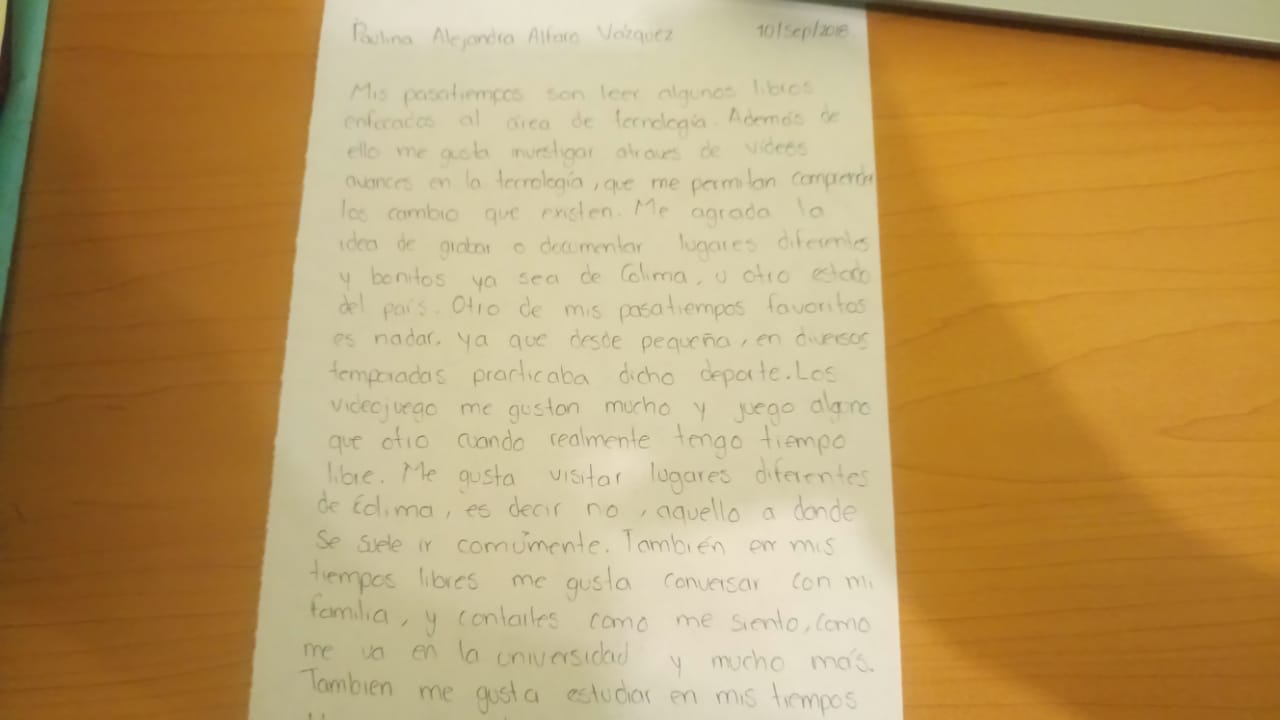 Paulina Alejandra Alfaro Vazquez 10/Sep/2018
Mis pasatiempos son leer algunos libros
enfocados al área de tecnología. Además de
ello me gusta investigar atraves de vídeos
avances en la tecnología, que me permitan comprender
los cambio que existen. Me agrada la
idea de grabar o documentar lugares diferentes
y bonitos ya sea de Colima, u otro estado
del país. Otro de mis pasatiempos favoritos
es nadar, ya que desde pequeña, en diversos
temporadas practicaba dicho deporte. Los
videojuego me gustan mucho y juego alguno
que otro cuando realmente tengo tiempo
libre. Me gusta visitar lugares diferentes
de Colima, es decir no, aquello a donde
se suele ir comúmente. También en mis
tiempos libres me gusta conversar con mi
familia, y contarles como me siento, como
me va en la universidad y mucho más.
Tambien me gusta estudiar en mis tiempos